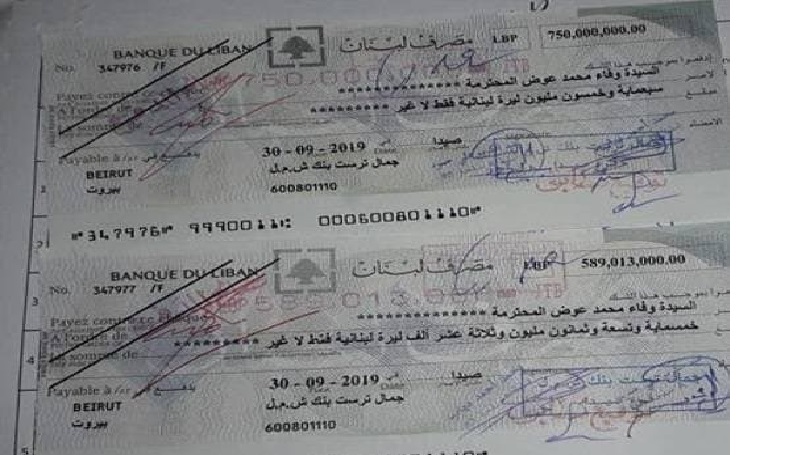 BANQUE DU LIBAN مصرف لبنان LBP 750,000,000.00
No. 347976 /F
750.000.000
Payez contre ce chèque
السيدة وفاء محمد عوض المحترمة **************
A l'ordre de
سبعماية وخمسون مليون ليرة لبنانية فقط لا غير *********
La somme de
Payable à/في يدفع 30-09-2019 في صيدا
BEIRUT جمال ترست بنك ش.م.ل
بيروت 600801110
توقيع ثاني
"347976" 99900111: 000600801110"
BANQUE DU LIBAN مصرف لبنان LBP 589,013,000.00
No. 347977 /F
589.013.000
Payez contre ce chèque
السيدة وفاء محمد عوض المحترمة **************
A l'ordre de
خمسماية وتسعة وثمانون مليون وثلاثة عشر ألف ليرة لبنانية فقط لا غير *********
La somme de
Payable à/في يدفع 30-09-2019 في صيدا
BEIRUT جمال ترست بنك ش.م.ل
بيروت 600801110